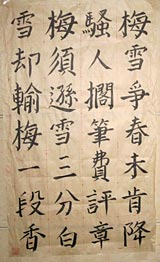 梅雪爭春未肯降
騷人擱筆費評章
梅須遜雪三分白
雪却輸梅一段香